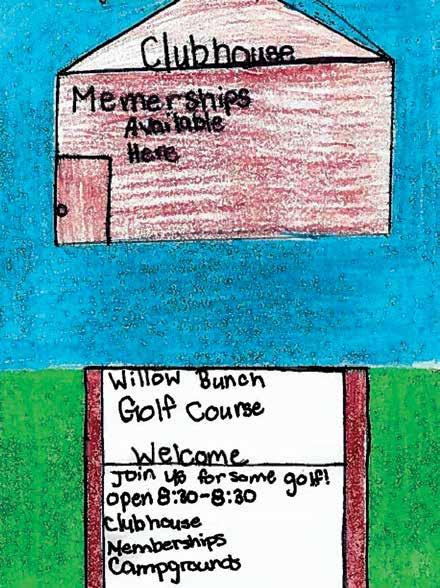 Clubhouse
Memerships
Available
Here
Willow Bunch
Golf Course
Welcome
Join us for some golf!
open 8:30-8:30
Clubhouse
Memberships
Campgrounds